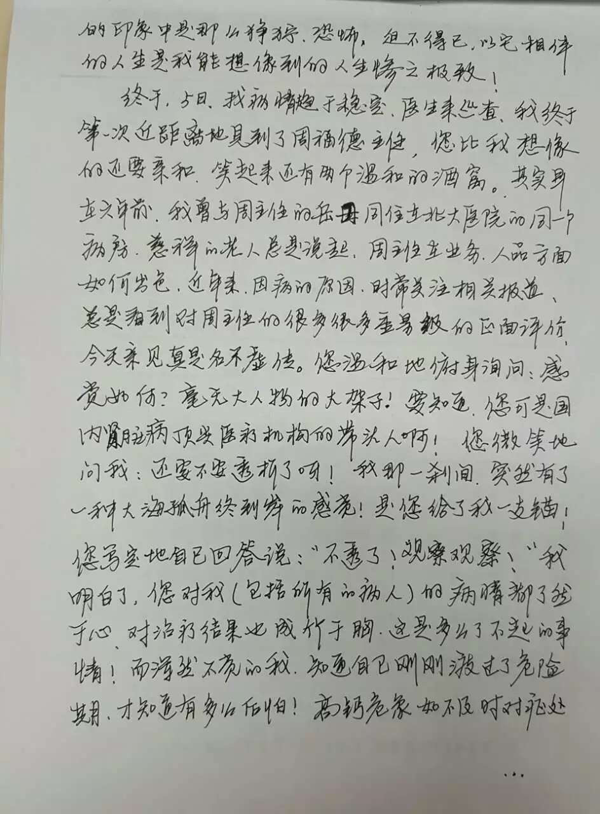 的印象中是那么狰狞、恐怖，迫不得已，以它相伴
的人生是我能想像到的人生惨之极致！
终于，5日，我病情趋于稳定，医生来巡查，我终于
第一次近距离地见到了周福德主任，您比我想像
的还要亲和，笑起来还有两个温和的酒窝。其实早
在六年前，我曾与周主任的岳母同住在北大医院的同一个
病房，慈祥的老人总是说起，周主任在业务、人品方面
如何出色，近年来，因病的原因，时常关注相关报道，
总是看到对周主任的很多很多重易级的正面评价，
今天亲见真是名不虚传。您温和地俯身询问：感
觉如何？毫无大人物的大架子！要知道，您可是国
内肾脏病顶尖医疗机构的带头人啊！您微笑地
问我：还要不要透析了呀！我那一刹间，突然有了
一种大海孤舟终到岸的感觉！是您给了我一支锚！
您笃定地自己回答说：“不透了！观察观察！”我
明白了，您对我（包括所有的病人）的病情都了然
于心，对治疗结果也成竹于胸，这是多么了不起的事
情！而浑然不觉的我，知道自己刚刚渡过了危险
期，才知道有多么后怕！高钙危象如不及时对症处
...